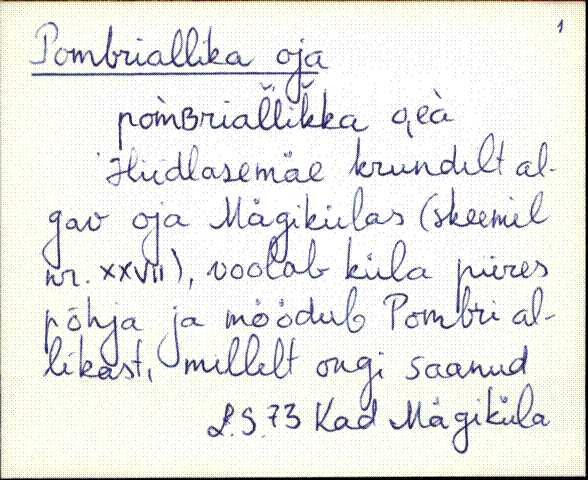 1
Pombriallika oja
pom̀ʙriallikka o̭eà
Hiidlasemäe krundilt al-
gav oja Mägikülas (skeemil
nr. XXVII), voolab küla piires
põhja ja möödub Pombri al-
likast, millelt ongi saanud
L.S. 73 Kad Mägiküla